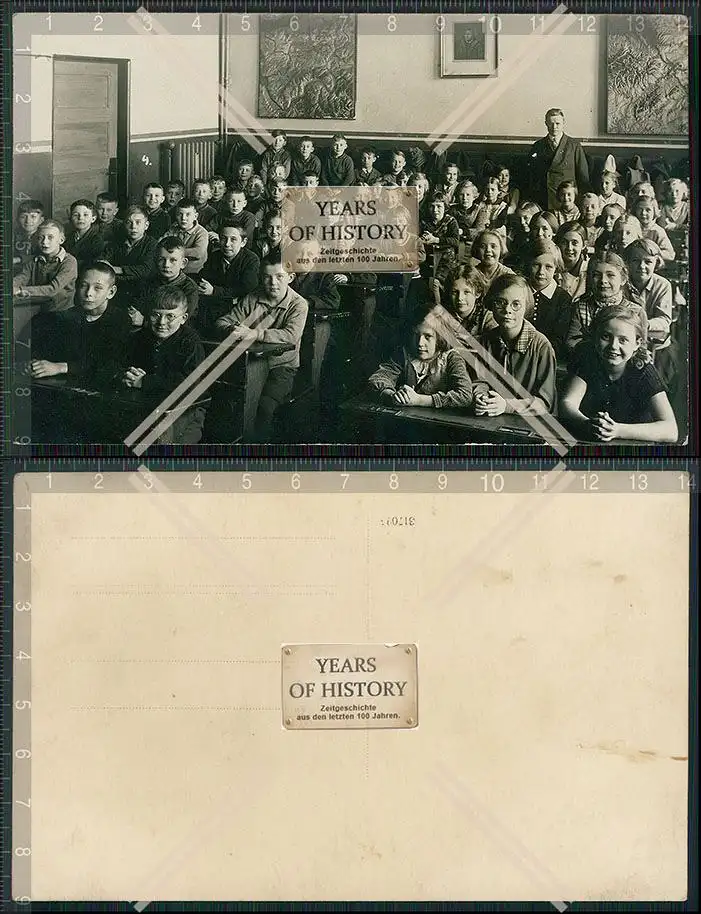 1 2 3 4 5 6 7 8 9 10 11 12 13 14
2
3
4
5
6
7
8
9
4.
YEARS
OF HISTORY
Zeitgeschichte
aus den letzten 100 Jahren.
1 2 3 4 5 6 7 8 9 10 11 12 13 14
1
2
3
4
5
6
7
8
9
YEARS
OF HISTORY
Zeitgeschichte
aus den letzten 100 Jahren.